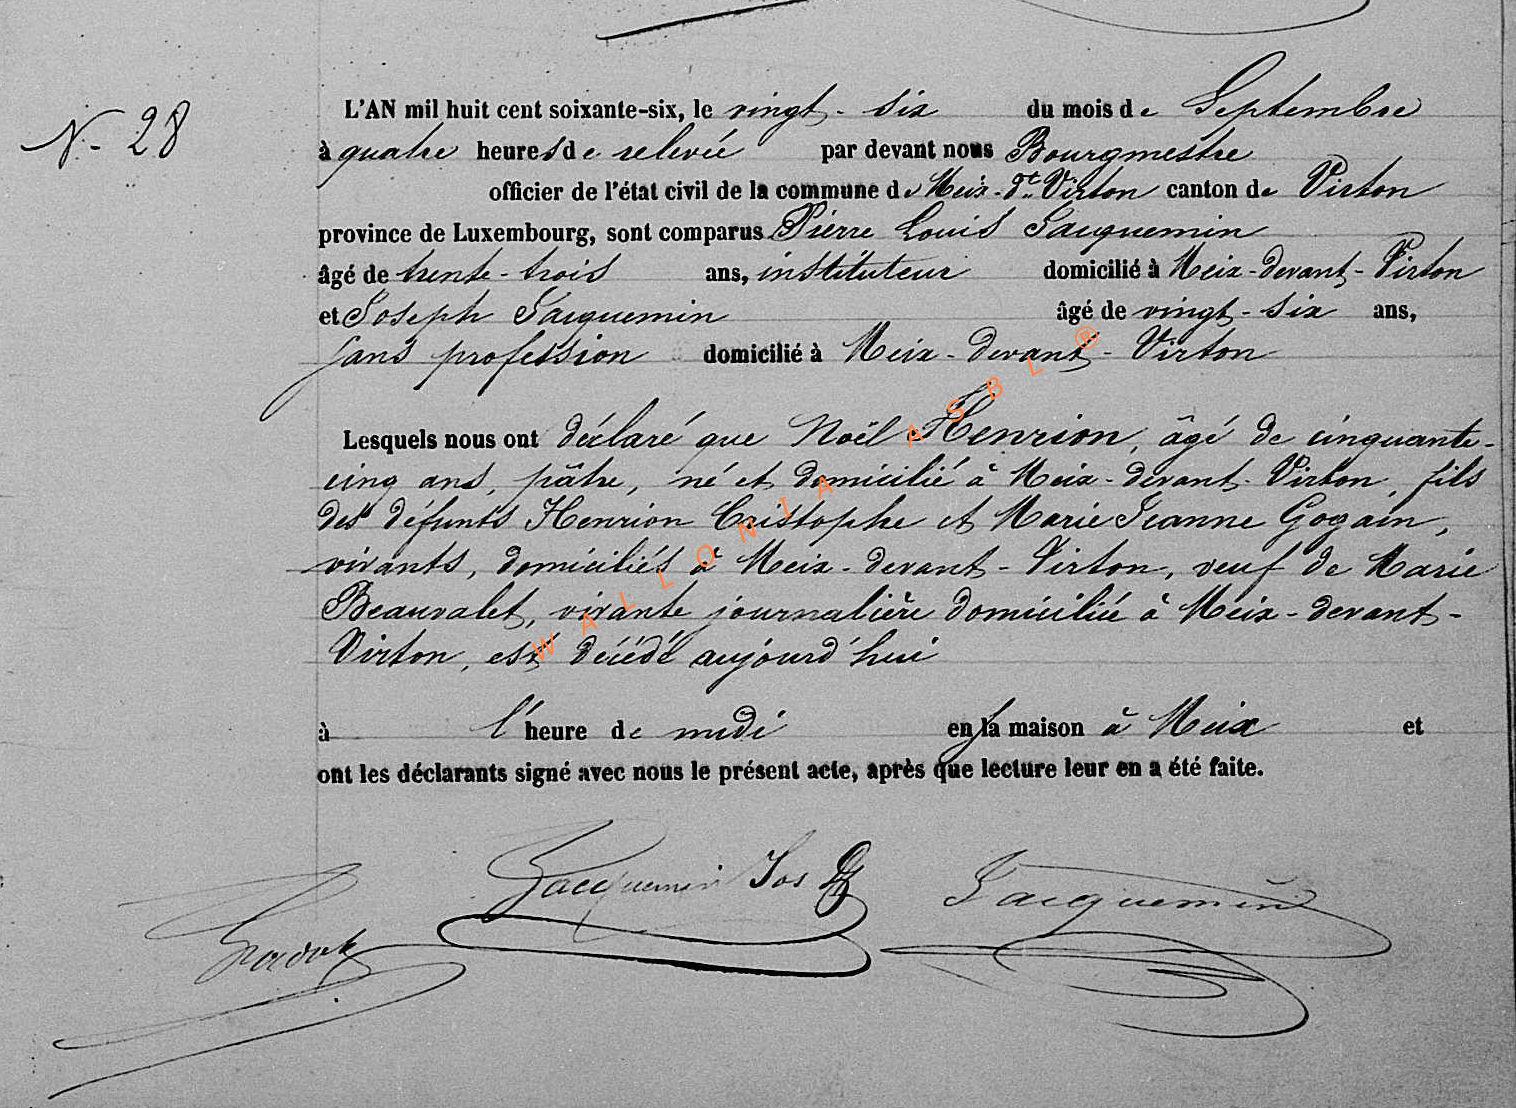 N. 28
L'AN mil huit cent soixante-six, le vingt-six du mois de Septembre
à quatre heures de relevée par devant nous Bourgmestre
officier de l'état civil de la commune de Meix-dt. Virton canton de Virton
province de Luxembourg, sont comparus Pierre Louis Jacquemin
âgé de trente-trois ans, instituteur domicilié à Meix-devant-Virton
et Joseph Jacquemin âgé de vingt-six ans,
sans profession domicilié à Meix-devant-Virton
Lesquels nous ont déclaré que Noël Henrion, âgé de cinquante-
cinq ans, pâtre, né et domicilié à Meix-devant-Virton, fils
des défunts Henrion Cristophe et Marie Jeanne Gogain,
vivants, domiciliés à Meix-devant-Virton, veuf de Marie
Beauvalet, vivante journalière domiciliée à Meix-devant-
Virton, est décédé aujourd'hui
à l'heure de midi en sa maison à Meix et
ont les déclarants signé avec nous le présent acte, après que lecture leur en a été faite.
Jacquemin Jos Jacquemin
WALLONIA ASBL ®